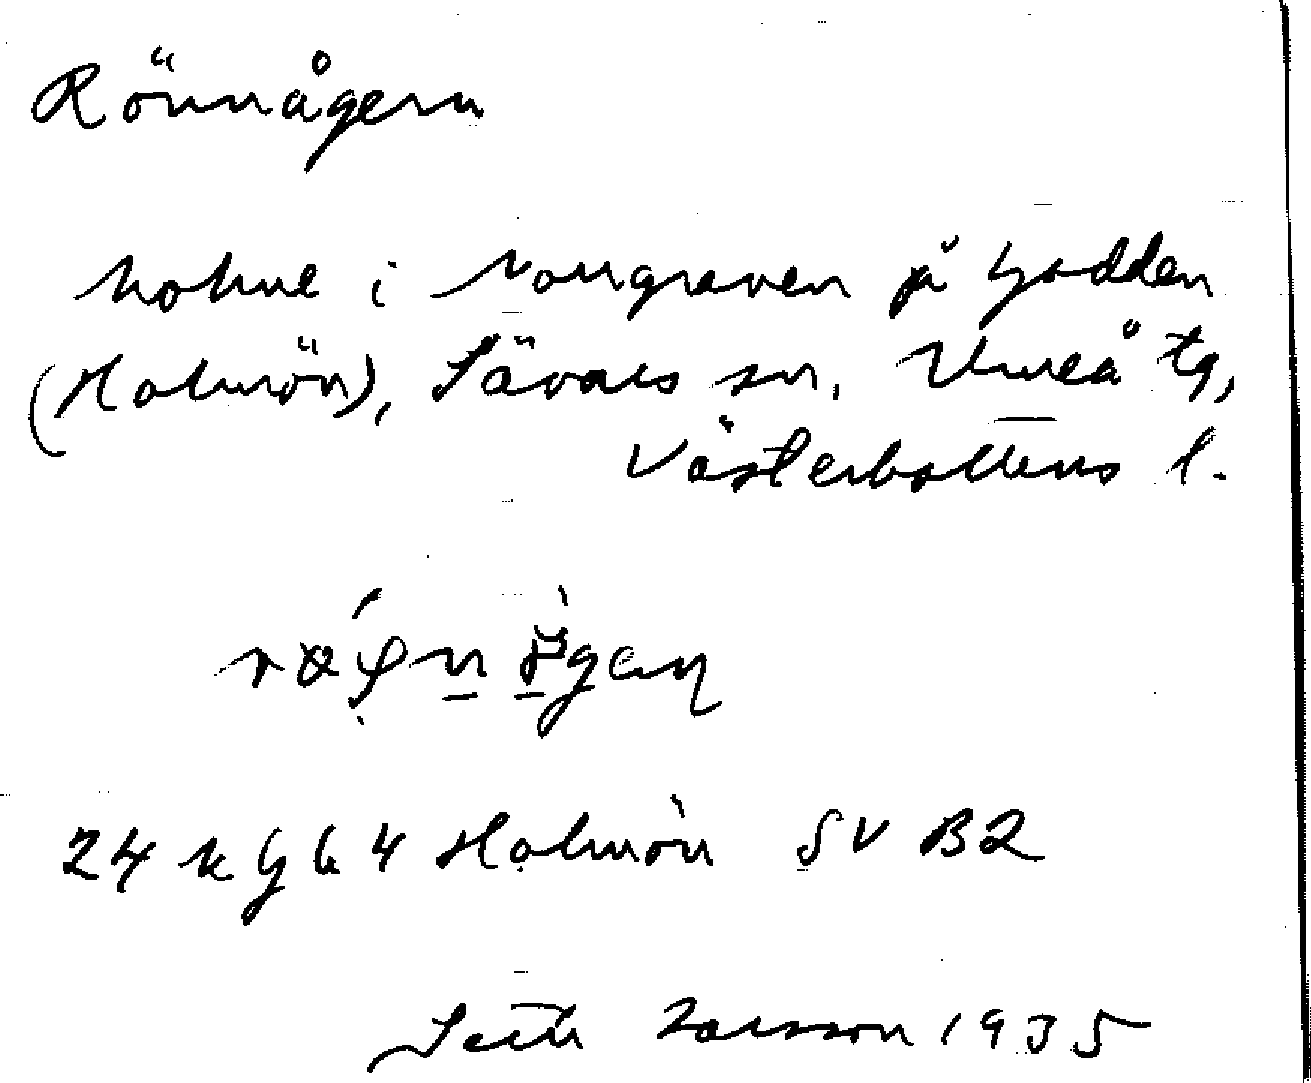 Rönnågern
holme i Norrgraven på Gadden
(Holmön), Sävars sn, Umeå tg,
Västerbottens l.
24 k G b 4 Holmön SV B2
Seth Larsson 1935